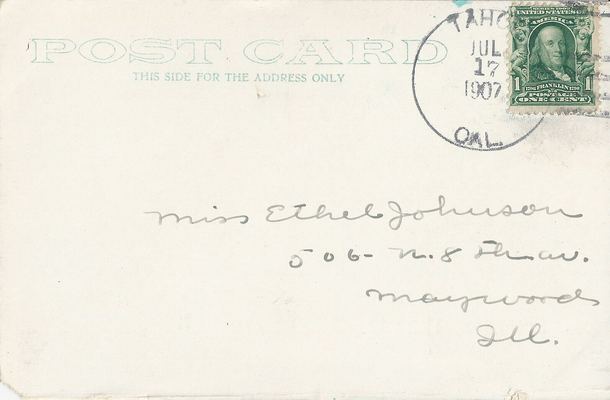 POST CARD
THIS SIDE FOR THE ADDRESS ONLY
TAHO
JUL
17
1907
CAL.
SERIES 1902
UNITED STATES OF
AMERICA
1 FRANKLIN 1
POSTAGE
ONE CENT
Miss Ethel Johnson
506- N. 8 th av.
Maywood
Ill.